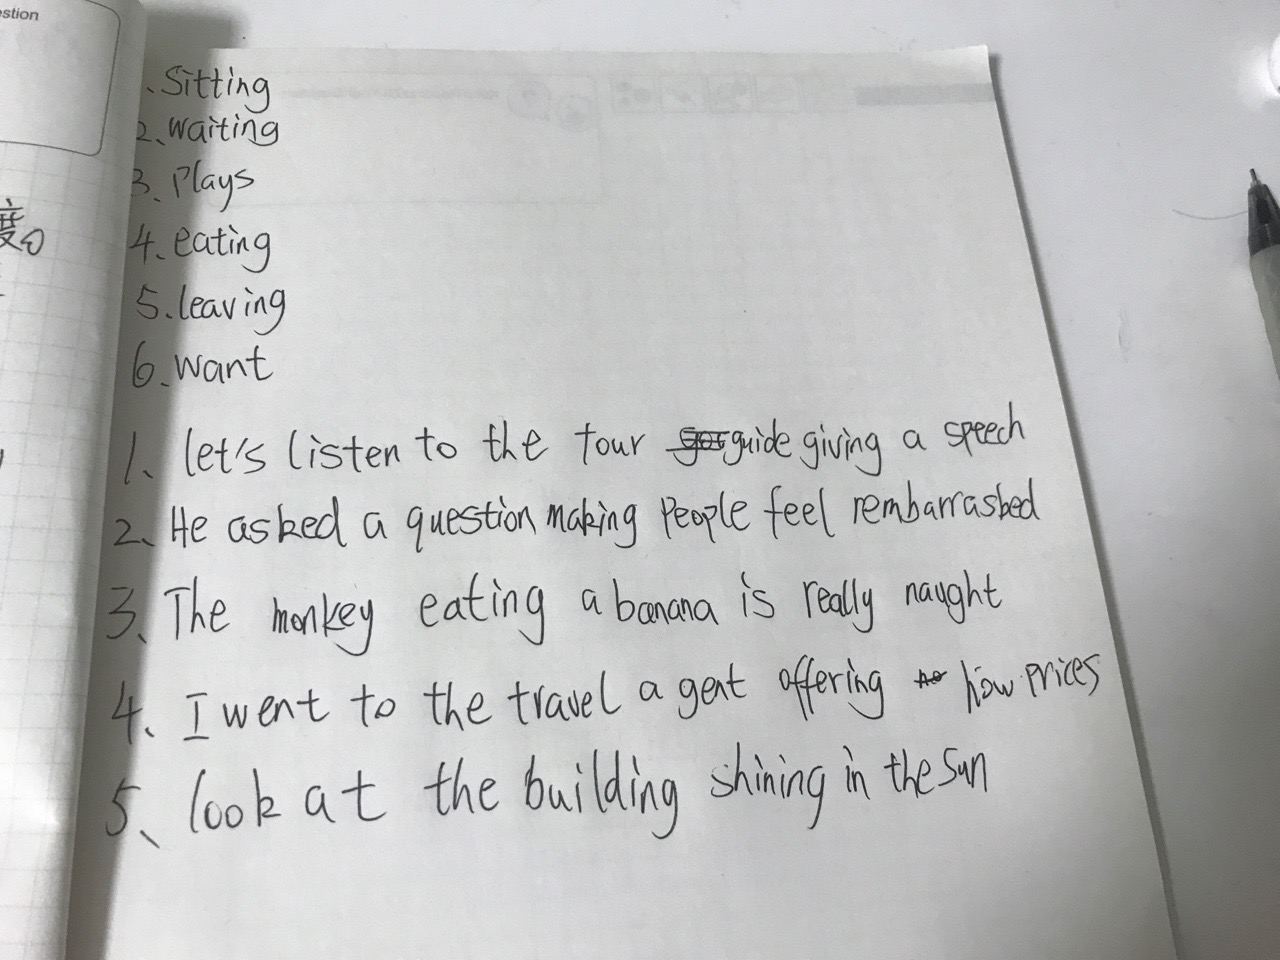 estion
度
、Sitting
2、waiting
3、Plays
4、eating
5.leaving
6、want
1、let's listen to the tour guide giving a speech
2、He asked a question making People feel rembarrasbed
3、The monkey eating a banana is really naught
4、I went to the travel agent offering how prices
5、look at the building shining in the sun